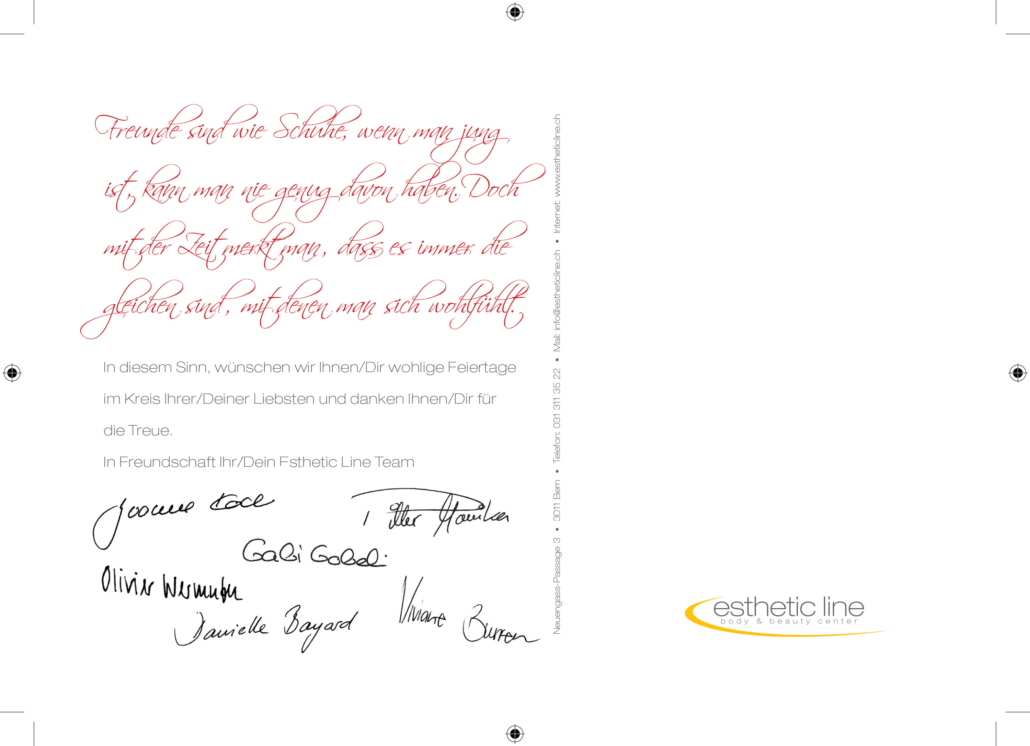 Freunde sind wie Schuhe, wenn man jung
ist, kann man nie genug davon haben. Doch
mit der Zeit merkt man, dass es immer die
gleichen sind, mit denen man sich wohlfühlt.
In diesem Sinn, wünschen wir Ihnen/Dir wohlige Feiertage
im Kreis Ihrer/Deiner Liebsten und danken Ihnen/Dir für
die Treue.
In Freundschaft Ihr/Dein Esthetic Line Team
Gabi Gobel
Olivier
Danielle Bayard
Viviane Burren
Neuengass-Passage 3 • 3011 Bern • Telefon: 031 311 35 22 • Mail: info@estheticline.ch • Internet: www.estheticline.ch
esthetic line
body & beauty center